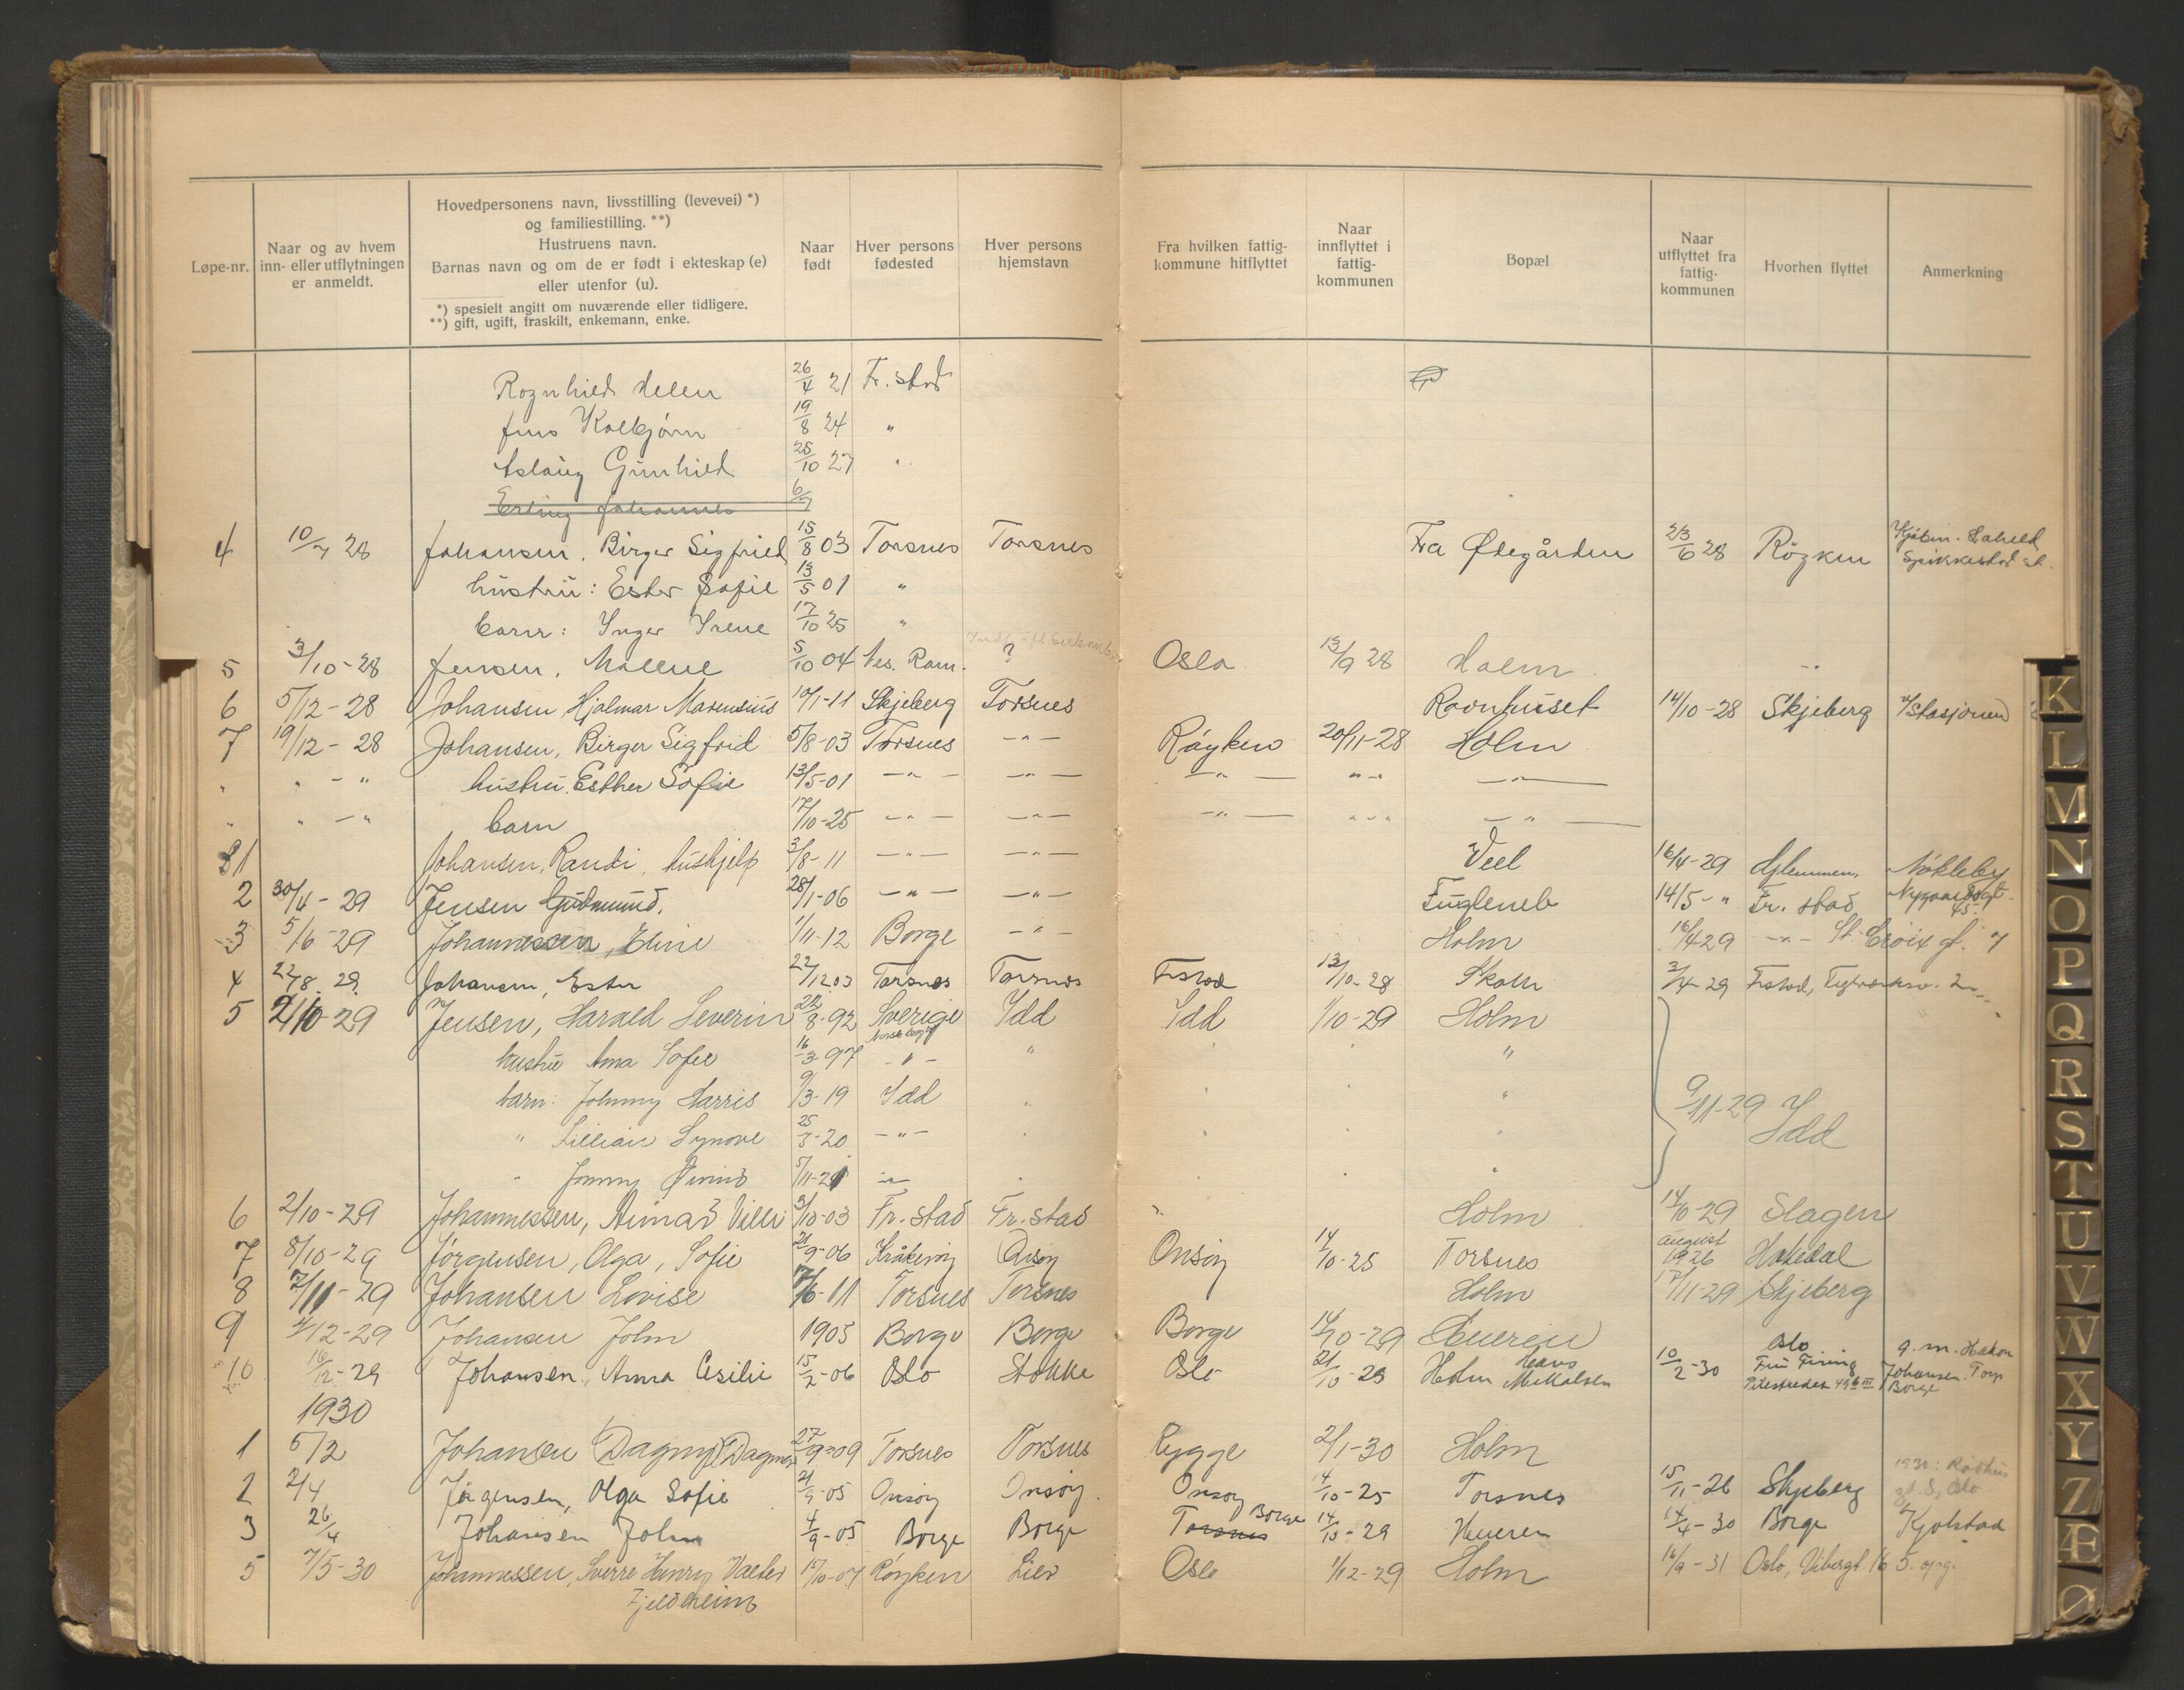 Løpe-nr.
Naar og av hvem
inn- eller utflytningen
er anmeldt.
Hovedpersonens navn, livsstilling (levevei) *)
og familiestilling. **)
Hustruens navn.
Barnas navn og om de er født i ekteskap (e)
eller utenfor (u).
*) spesielt angitt om nuværende eller tidligere.
**) gift, ugift, fraskilt, enkemann, enke.
Naar
født
Hver persons
fødested
Hver persons
hjemstavn
Fra hvilken fattig-
kommune hitflyttet
Naar
innflyttet i
fattig-
kommunen
Bopæl
Naar
utflyttet fra
fattig-
kommunen
Hvorhen flyttet
Anmerkning
Ragnhild Helen 26/4 21 Fr. stad
Jens Kolbjørn 19/8 24 "
Aslaug Gunhild 25/10 27 "
Erling Johannes 6/7
4 10/7 28 Johansen, Birger Sigfried 15/8 03 Torsnes Torsnes Fra Ødegården 23/6 28 Röyken Spikkestad st.
hustru: Ester Sofie 13/5 01 "
barn: Inger Irene 17/10 25 "
5 3/10-28 Jensen, Malene 5/10 04 Nes. Rom. ? Oslo 13/9 28 Holm
6 5/12-28 Johansen Hjalmar Marensius 10/1-11 Skjeberg Torsnes Ravnhuset 14/10-28 Skjeberg v/Stasjonen
7 19/12-28 Johansen, Birger Sigfrid 5/8-03 Torsnes -"- Røyken 20/11-28 Holm
" "-" hustru. Esther Sofie 13/5-01 -"- -"- -"- "-" -"-
" "-" barn 17/10-25 -"- -"- -"- "-" -"-
1 Johansen, Randi, hushjelp 3/8-11 -"- -"- Veel 16/4-29 Glemmen, Nökleby
2 30/4-29 Jensen Gudmund. 28/1-06 -"- -"- Fugleneb 14/5-" Fr. stad Nygaardsgt. 45.
3 5/6-29 Johannessen, Eline 1/11-12 Borge -"- Holm 16/4 29 -"- St. Croix gt. 7
4 22/8. 29. Johansen, Ester 22/12 03 Torsnes Torsnes Frstad 13/10-28 Skolen 3/4-29 Frstad,
5 2/10-29 Jensen, Harald Severin 22/8-92 Sverige Idd Idd 1/10-29 Holm
Norsk borger
hustru Anna Sofie 16/3-97 -"- " "
barn: Johnny Harris 9/3-19 Idd " " 9/11-29 Idd
" Lillian Synove 25/3-20 -"-
" Jonny Øivind 5/11-21 -"-
6 2/10-29 Johannessen, Aimar Villi 3/10-03 Fr. stad Fr. stad Holm 14/10-29 Slagen
7 8/10-29 Jørgensen, Olga, Sofie 21/9-06 Kråkerøy Onsøy Onsøy 14/10-25 Torsnes august 1926 Hakedal
8 17/11-29 Johansen Lovise 17/6-11 Torsnes Torsnes Holm 17/11-29 Skjeberg
9 4/12-29 Johansen John 1905 Borge Borge Borge 14/10-29 Hueren
10 16/12-29 Johansen, Anna Cesilie 15/2-06 Oslo Stokke Oslo 21/10-29 Holm Hans Mikkalsen 10/2-30 Oslo Pilestredet g.m. Hakon Johansen. Torp Borge
1930
1 5/2 Johansen Dagny (Dagmar) 27/9-09 Torsnes Torsnes Rygge 2/1-30 Holm
2 2/4 Jörgensen, Olga Sofie 21/9-05 Onsøy Onsøy. Onsøy 14/10-25 Torsnes 15/11-26 Skjeberg
3 26/4 Johansen John 4/9-05 Borge Borge Torsnes Borge 14/10-29 Hueren 14/4-30 Borge Kjølstad
5 7/5-30 Johannessen, Sverre Henry Valter 15/10-07 Røyken Lier Oslo 1/12-29 Holm 16/9-31 Oslo, Vibergt. 16 5. opg.
Fjeldheim
K
L
M
N
O
P
Q
R
S
T
U
V
W
X
Y
Z
Æ
Ø